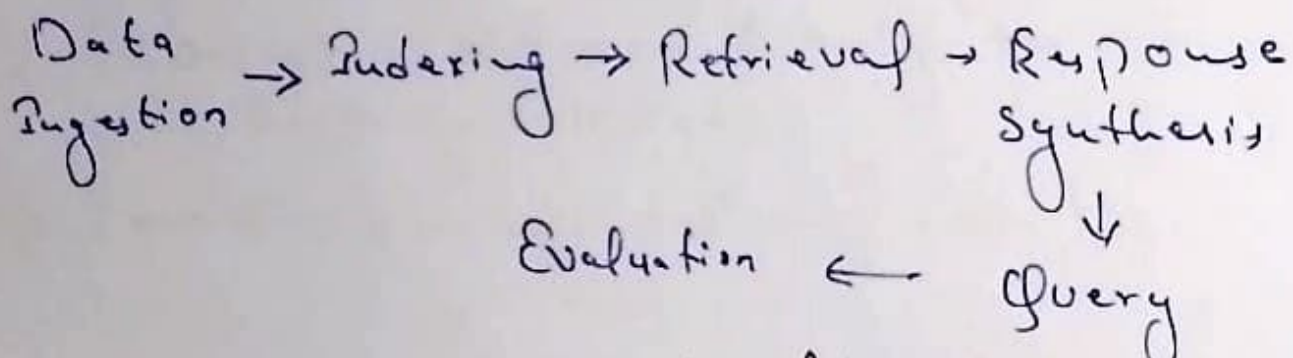 Data
Ingestion → Indexing → Retrieval → Response
Synthesis
↓
Evaluation ← Query